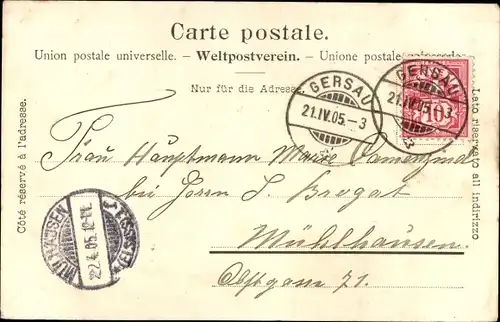 Carte postale.
Union postale universelle. – Weltpostverein. – Unione postale
Nur für die Adresse.
GERSAU
21.IV.05.–3
GERSAU
21.IV.05.–3
10
Côté réservé à l'adresse.
Lato riservato all'indirizzo
Frau Hauptmann Marie Camenzind
bei Herrn S. Brogat
Mühlhausen.
Obstgass 71.
MÜLHAUSEN
22.4.05.12-1N.
(ELSASS)